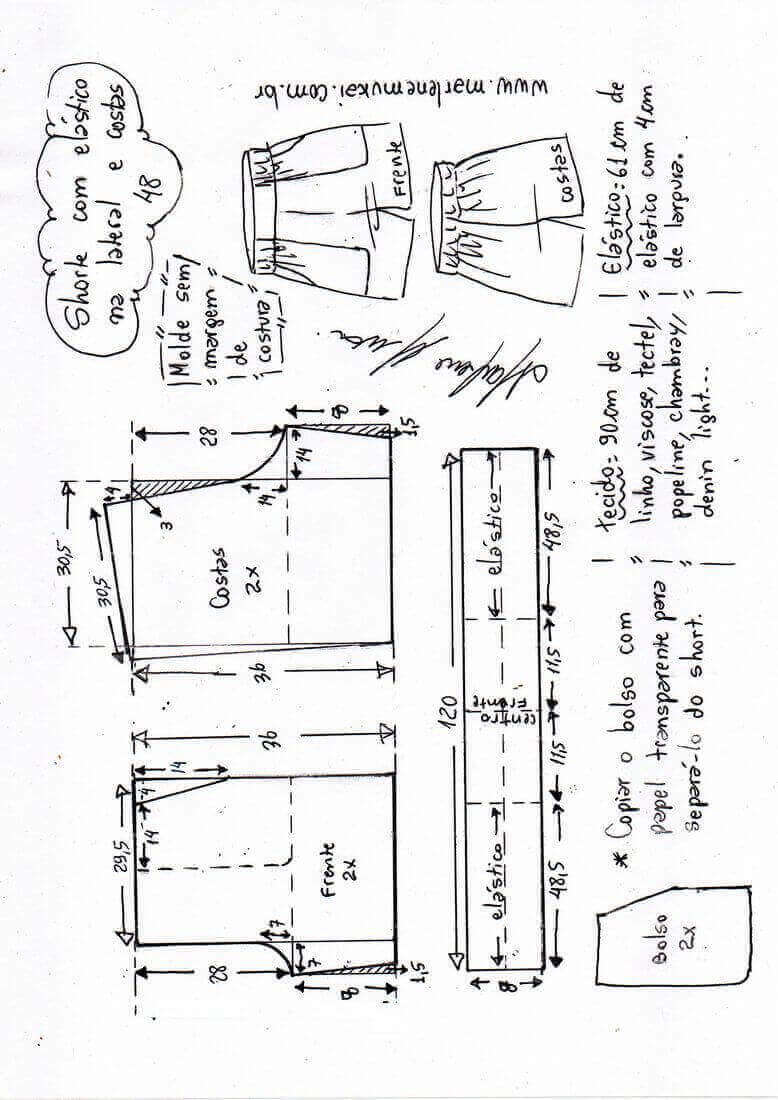 Shorte com elástico
na lateral e costas
48
Molde sem
margem
de
costura
www.marlenemukai.com.br
Frente
costas
29,5
14
4
14
36
28
7
7
8
1,5
Frente
2x
30,5
30,5
4
3
36
28
14
14
8
1,5
Costas
2x
120
elástico
centro
frente
elástico
48,5
11,5
11,5
48,5
8
Bolso
2x
* Copiar o bolso com
papel transparente para
separá-lo do short.
tecido = 90 cm de
linho, viscose, tectel,
popeline, chambray,
denin light...
Elástico: 61 cm de
elástico com 4 cm
de largura.